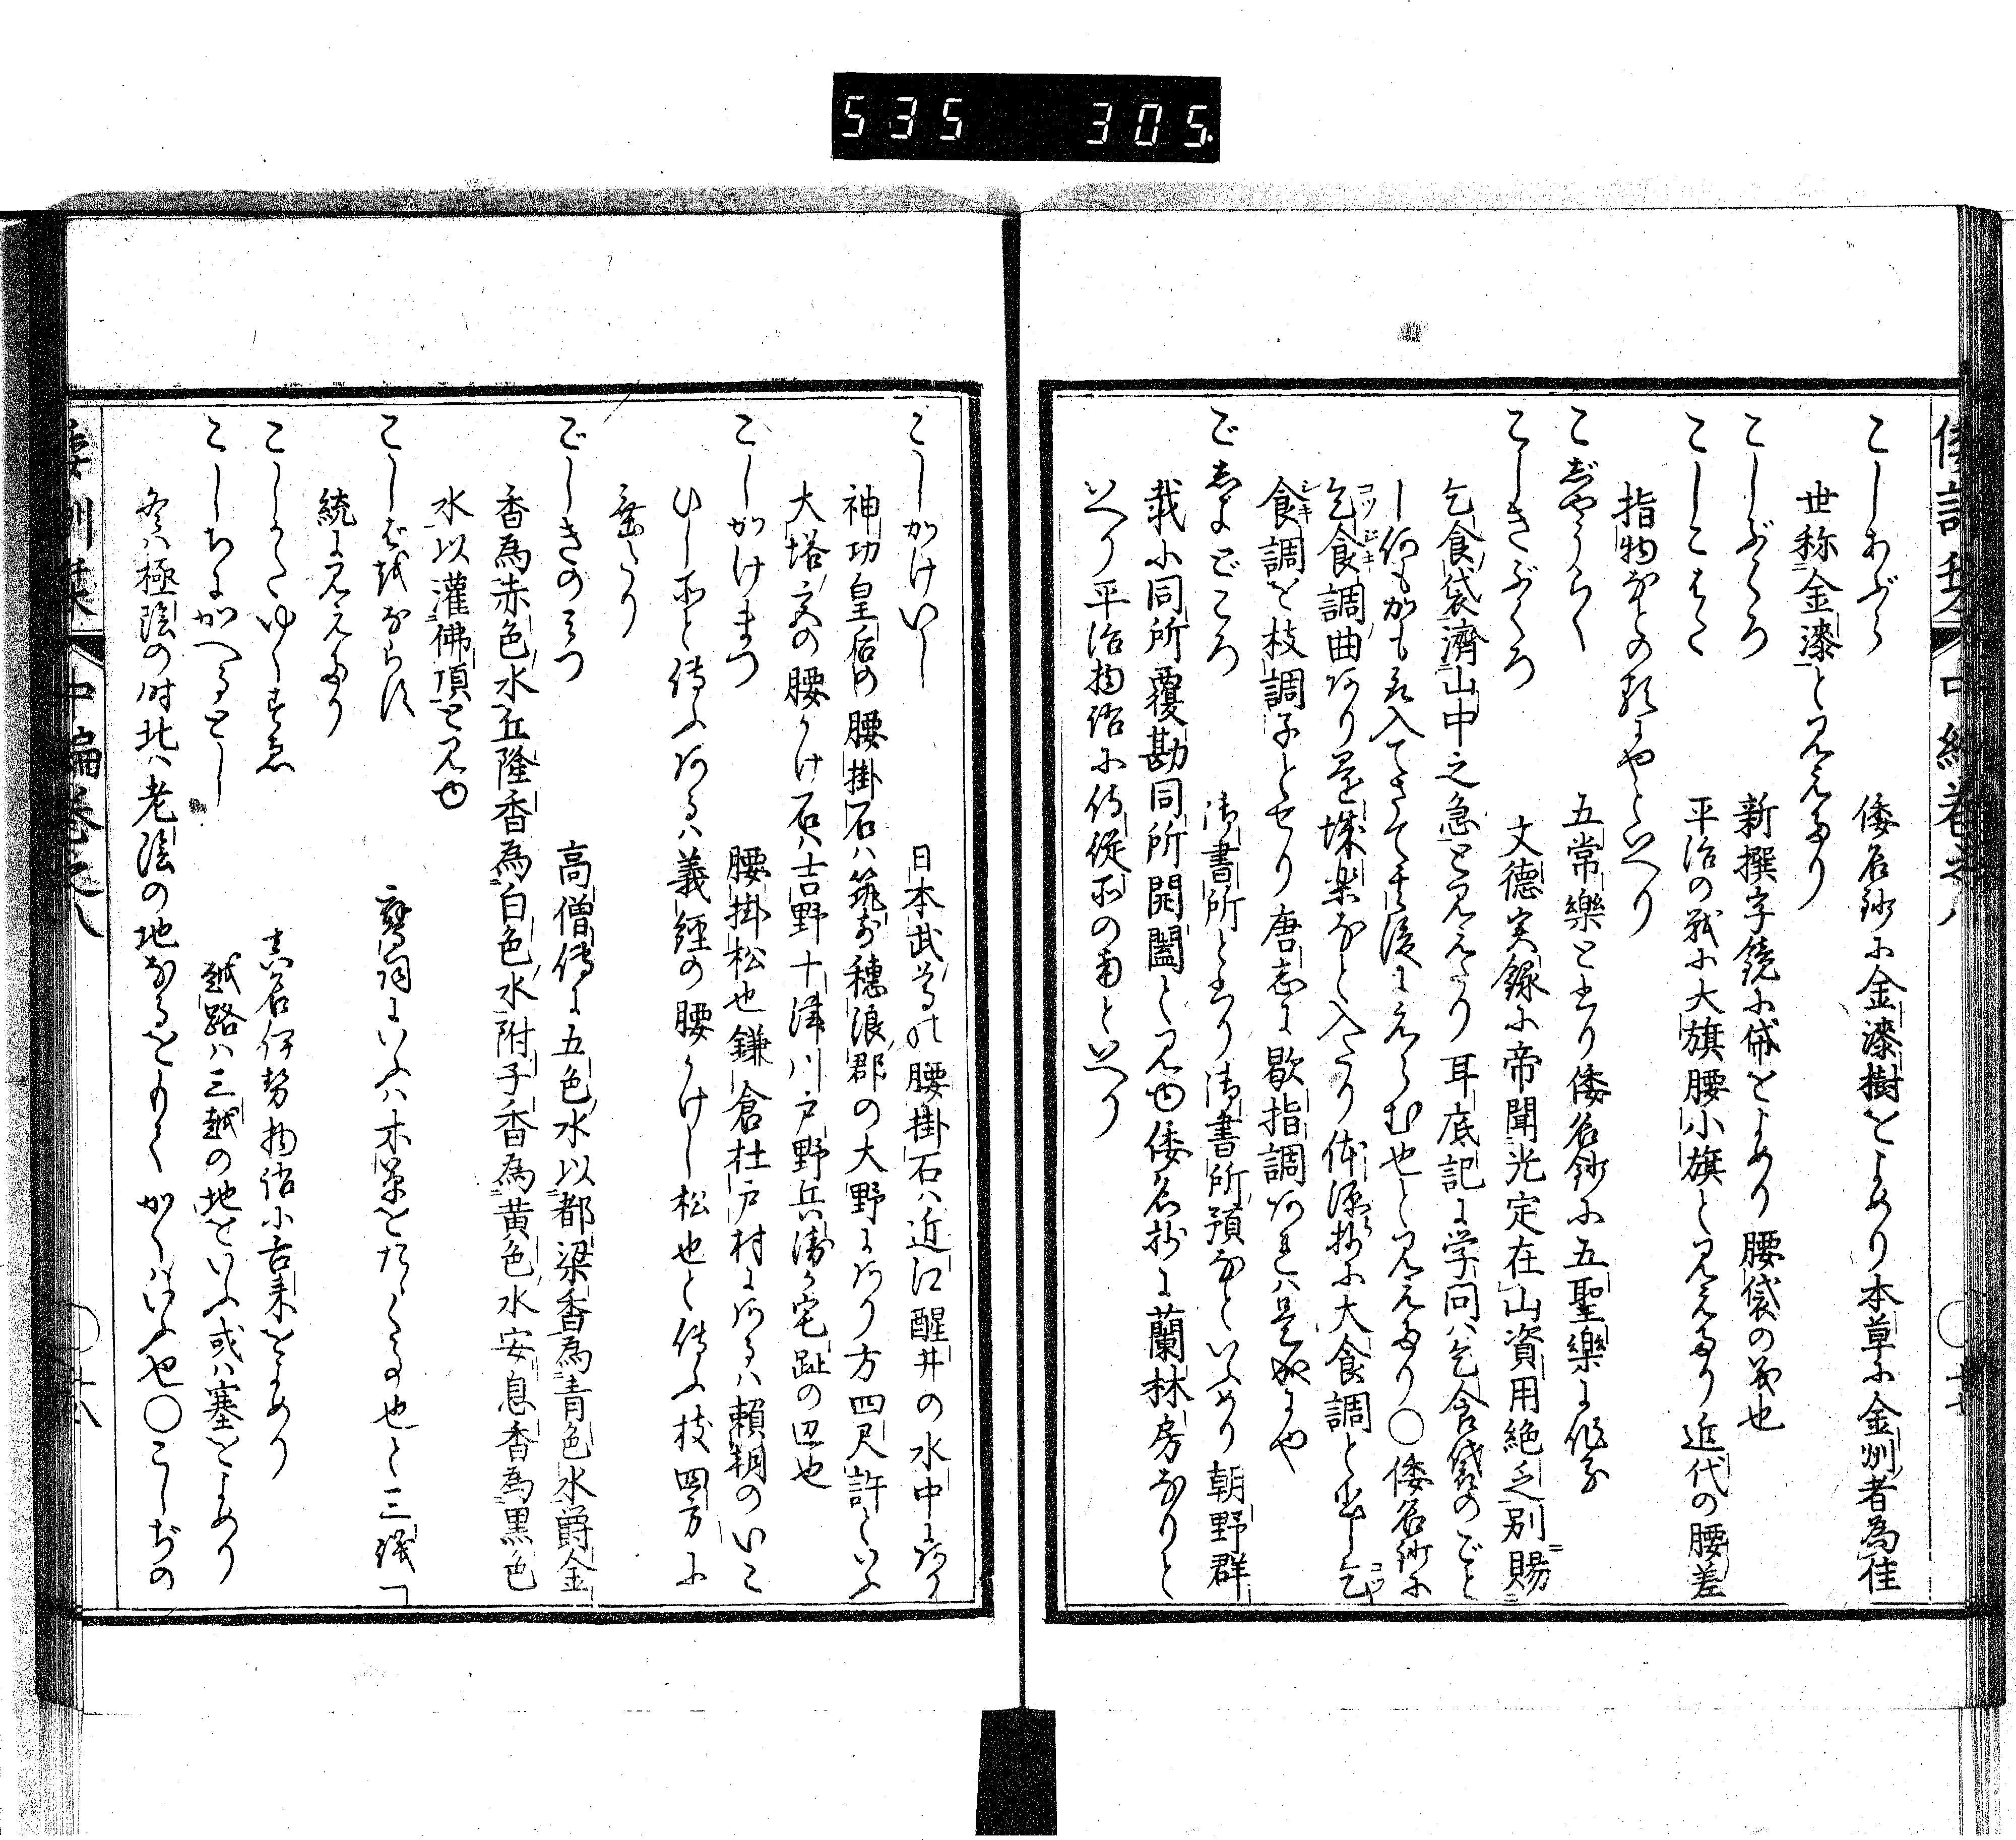 535 305.
こしあぶら 倭名鈔に金漆樹をよめり本草に金州者為佳
世称金漆と見えたり
こしぶくろ 新撰字鏡に帒をよめり腰袋の義也
こしこはた 平治の戦に大旗腰小旗と見えたり近代の腰差
指物などの類にやといへり
こじやうらく 五常樂と書り倭名鈔に五聖樂に作る
こしきぶくろ 文德実録に帝聞光定在山資用絶乏別賜
乞食袋濟山中之急と見えたり耳底記に学问ハ乞食袋のごと
し何もかも取入てさて其後にえらむ也と見えたり○倭名鈔に
乞食調曲あり是を壖樂など入たり体源抄に大食調と書し乞
食調を枝調子とせり唐志に歇指調あるハ是成にや
ごしよどころ 御書所と書り御書所預などいふめり朝野群
載小同所覆勘同所開闔と見ゆ倭名抄に蘭林房なりと
いへり平治物語に侍従所の南といへり
こしかけいし 日本武尊の腰掛石ハ近江醒井の水中にあり
神功皇后の腰掛石ハ筑前穗浪郡の大野にあり方四尺許といふ
大塔宮の腰かけ石ハ吉野十津川戸野兵衛か宅趾の辺也
こしかけまつ 腰掛松也鎌倉杜戸村にあるハ頼朝のいこ
ひし所と傳ふあるハ義經の腰かけし松也と傳ふ枝四方に
垂たり
ごしきのみつ 高僧傳に五色水以都梁香為青色水爵金
香為赤色水丘隆香為白色水附子香為黄色水安息香為黒色
水以灌佛頂と見ゆ
こしば越ならす 鷹詞にいふハ木草をたゝく事也と三議一
統に見えたり
こしかたゆくすゑ 真名伊勢物語に古来をよめり
こしちにかへるとし 越路ハ三越の地をいふ或ハ塞をよめり
冬ハ極陰の时北ハ老陰の地なるをもてかくハいふ也○こしぢの